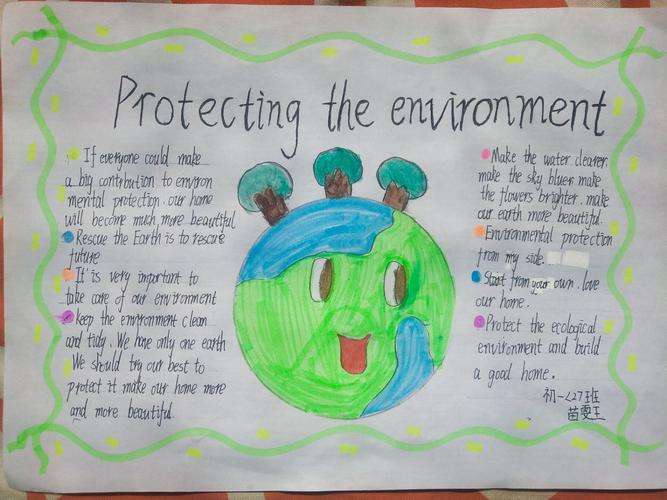 Protecting the environment
If everyone could make
a big contribution to environ
mental protection. our home
will become much more beautiful
Rescue the Earth is to rescue
future
It is very important to
take care of our environment
Keep the environment clean
and tidy. We have only one earth
We should try our best to
protect it make our home more
and more beautiful.
Make the water clearer.
make the sky bluer make
the flowers brighter. make
our earth more beautiful.
Environmental protection
from my side
Start from your own. love
our home.
Protect the ecological
environment and build
a good home.
初一〈27班
苗雯王